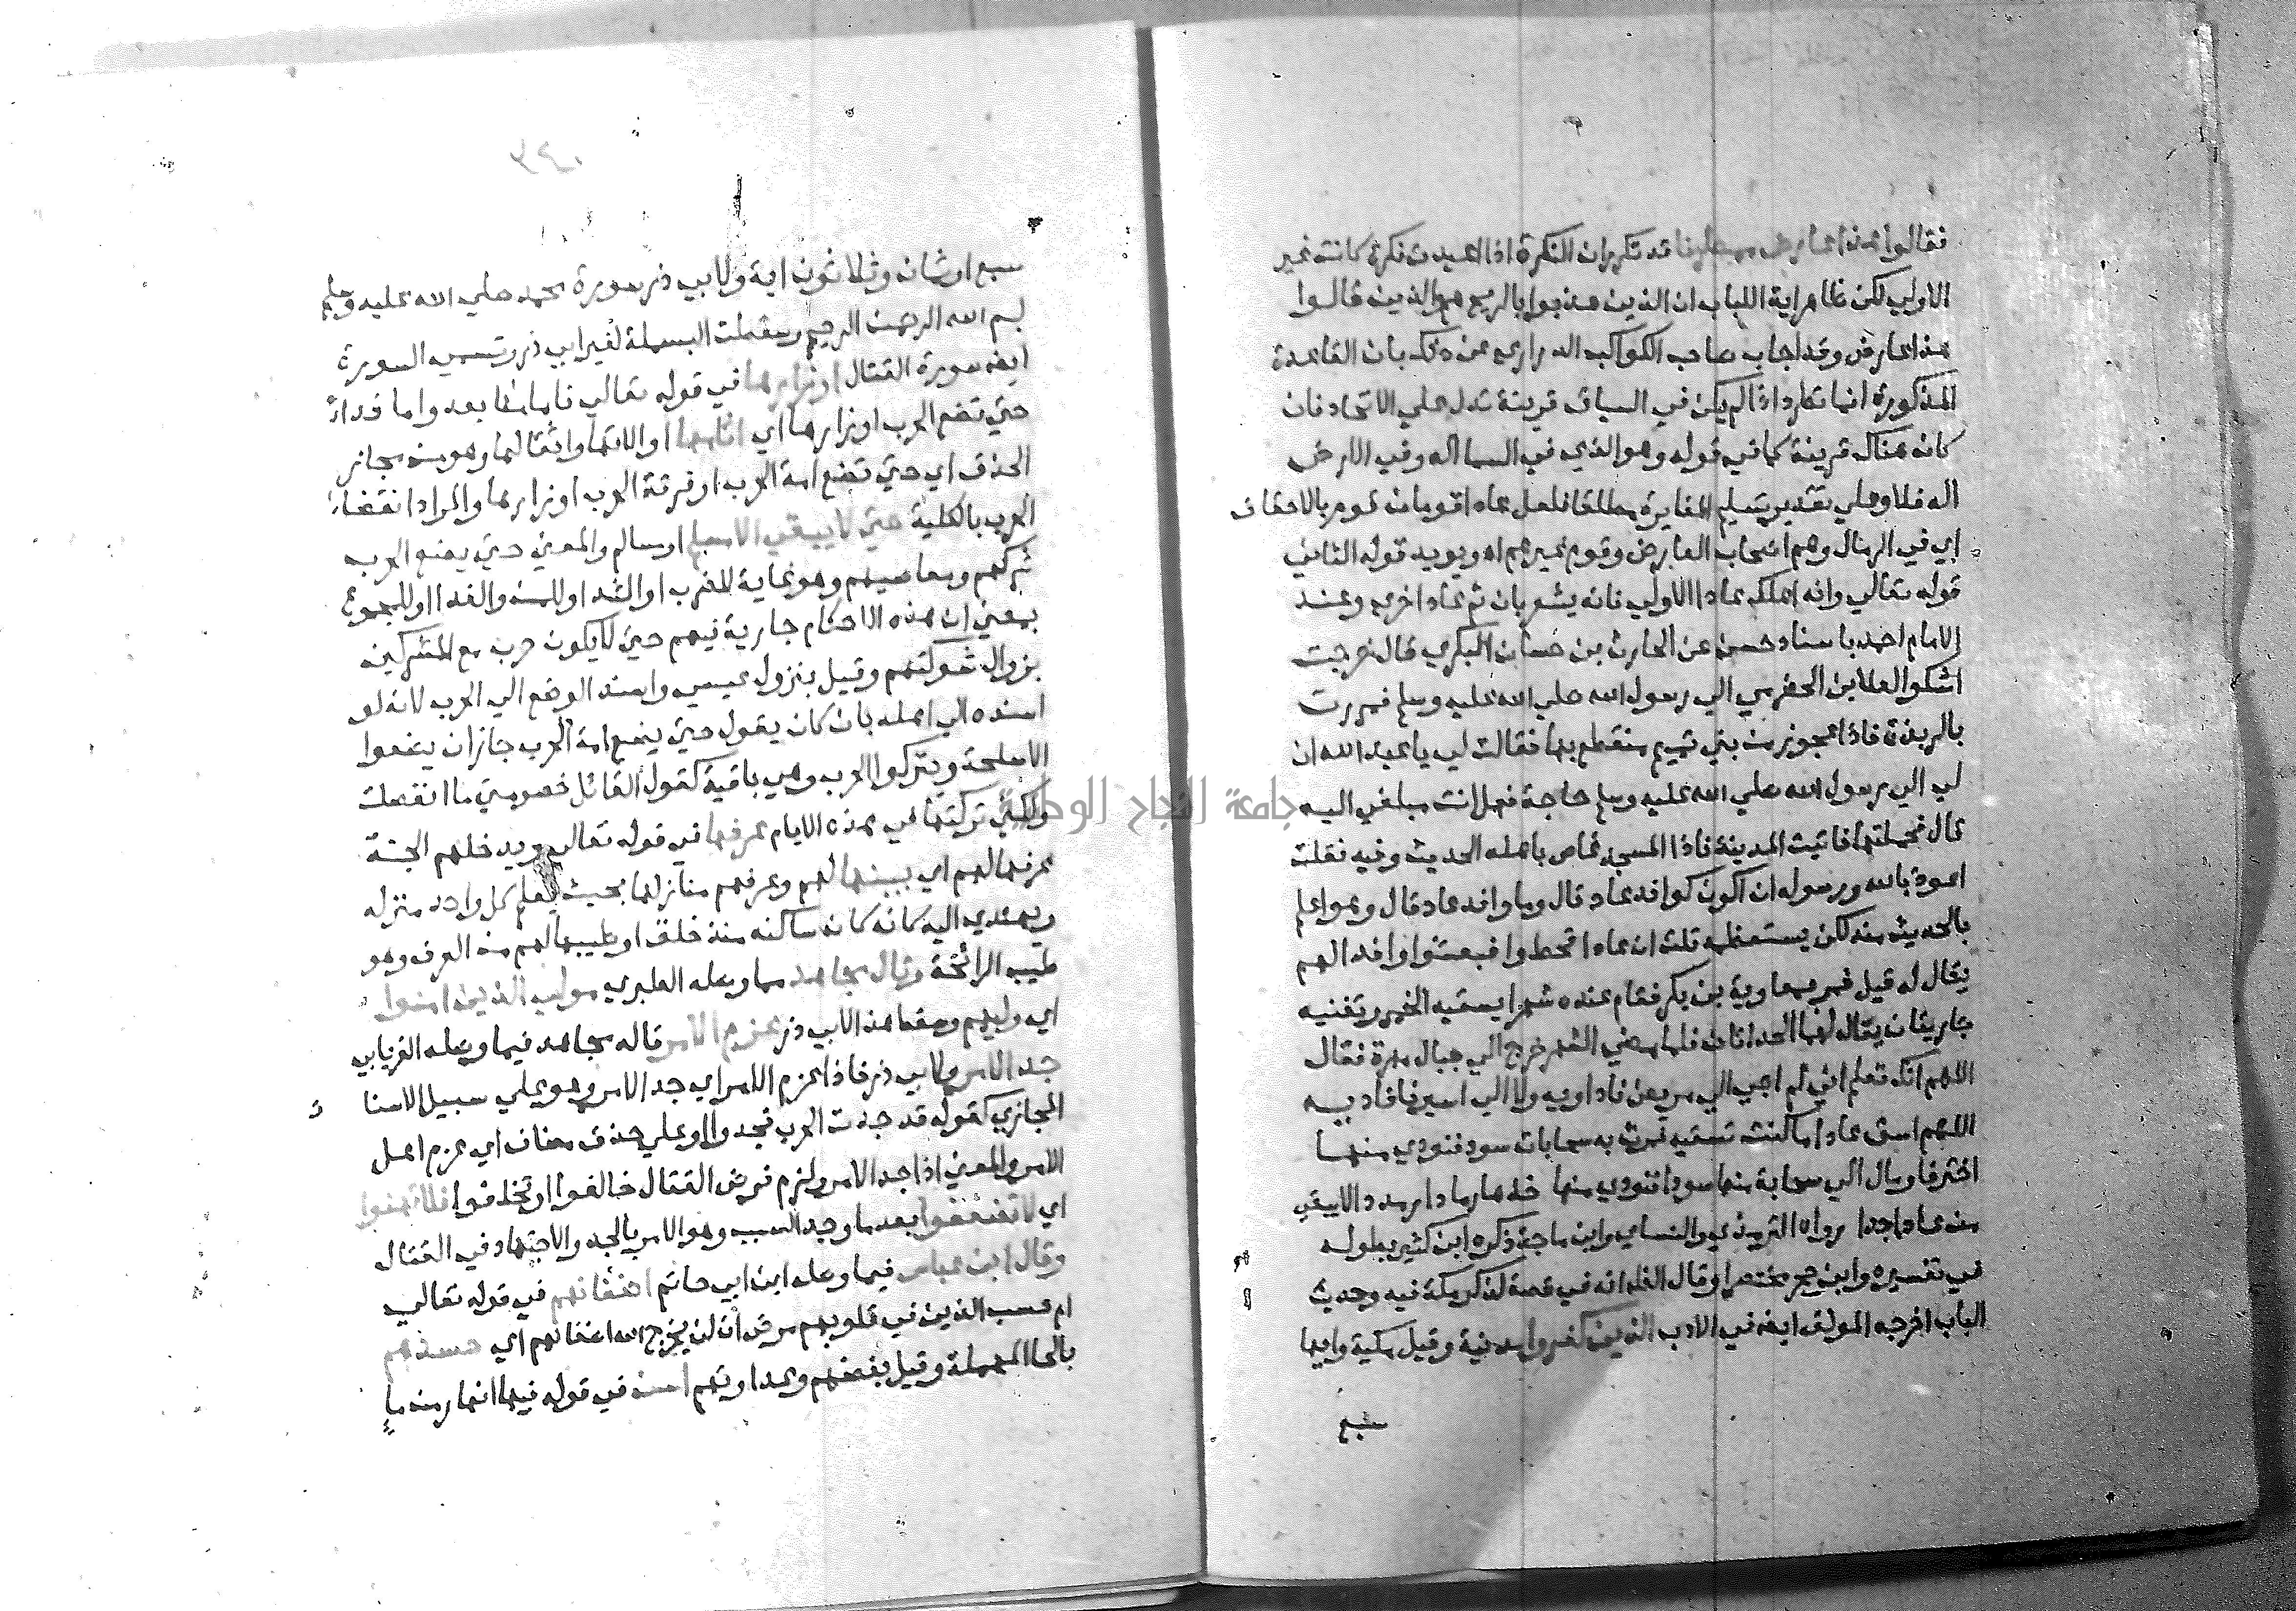 فقالوا هذا عارض ممطرنا قد تكرر ان النكرة اذا اعيدت نكرة كانت غير
الاولي لكن ظاهر اية الباب ان الذين عذبوا بالريح هم الذين قالوا
هذا عارض وقد اجاب صاحب الكواكب الدراري عن ذلك بان القاعدة
المذكورة انما تطرد اذا لم يكن في السياق قرينة تدل علي الاتحاد فان
كان هناك قرينة كما في قوله وهو الذي في السما اله وفي الارض
اله فلا وعلي تقدير تسليم المغايرة مطلقا فلعل عاد اقومان قوم بالاحقاف
اي في الرمال وهم اصحاب العارض وقوم غيرهم اه ويويد قوله الثاني
قوله تعالي وانه اهلك عادا الاولي فانه يشعر بان ثم عاد اخري وعند
الامام احمد باسناد حسن عن الحارث بن حسان البكري قال خرجت
اشكوا العلا بن الحضرمي الي رسول الله صلي الله عليه وسلم فمررت
بالربذة فاذا عجوز من بني تميم منقطع بها فقالت لي يا عبد الله ان
لي الي رسول الله صلي الله عليه وسلم حاجة فهل انت مبلغي اليه
قال فحملتها فاتيت المدينة فاذا المسجد غاص باهله الحديث وفيه فقلت
اعوذ بالله ورسوله ان اكون كوافد عاد قال وما وافد عاد قال وهو اعلم
بالحديث منه لكن يستعظمه قلت ان عادا قحطوا فبعثوا وافدا لهم
يقال له قيل فمر بمعاوية بن بكر فقام عنده شهرا يسقيه الخمر وتغنيه
جاريتان يقال لهما الجرادتان فلما مضي الشهر خرج الي جبال مهرة فقال
اللهم انك تعلم اني لم اجي الي مريض فاداويه ولا الي اسير فافاديه
اللهم اسق عادا ما كنت تسقيه فمرت به سحابات سود فنودي منها
اختر فاومال الي سحابة منها سودا فنودي منها خذها رمادا رمددا لا يبقي
من عاد احدا رواه الترمذي والنساي وابن ماجة ذكره ابن كثير بطوله
في تفسيره وابن حجر مختصرا وقال الظاهر انه في قصة لذكر مكة فيه وحديث
الباب اخرجه المولف ايضا في الادب الذين كفروا مدنية وقيل مكية وايها
سبع
سبع او ثمان وثلاثون اية ولابي ذر سورة محمد صلي الله عليه وسلم
بسم الله الرحمن الرحيم وسقطت البسملة لغير ابي ذر وتسمي السورة
ايضا سورة القتال اوزارها في قوله تعالي فاما منا بعد واما فداء
حتي تضع الحرب اوزارها اي اثامها او الاتها واثقالها وهو من مجاز
الحذف اي حتي تضع امة الحرب او فرقة الحرب اوزارها والمراد انقضاء
الحرب بالكلية حتي لا يبقي الا مسلم او مسالم والمعني حتي يضع الحرب
شركهم ومعاصيهم وهو غاية للضرب او الشد او للمن والفدا او للمجموع
بمعني ان هذه الاحكام جارية فيهم حتي لا يكون حرب مع المشركين
بزوال شوكتهم وقيل بنزول عيسي واسند الوضع الي الحرب لانه لو
اسنده الي اهله بان كان يقول حتي يضع امة الحرب جاز ان يضعوا
الاسلحة ويتركوا الحرب وهي باقية كقول القائل خصومتي ما انفصلت
ولكني تركتها في هذه الايام عرفها في قوله تعالي ويدخلهم الجنة
عرفها لهم اي بينها لهم وعرفهم منازلها بحيث يعلم كل واحد منزله
ويهتدي اليه كانه كان ساكنه منذ خلق او طيبها لهم من العرف وهو
طيب الرائحة وقال مجاهد مما وصله الطبري مولي الذين امنوا
اي وليهم وسقط هذا لابي ذر عزم الامر قاله مجاهد فيما وصله الفريابي
جد الامر ولابي ذر فاذا عزم الامر اي جد الامر وهو علي سبيل الاسنا
المجازي كقوله قد جدت الحرب فجدوا او علي حذف مضاف اي عزم اهل
الامر والمعني اذا جد الامر ولزم فرض القتال خالفوا او تخلفوا فلا تهنوا
اي لا تضعفوا بعد ما وجد السبب وهو الامر بالجد والاجتهاد في القتال
وقال ابن عباس فيما وصله ابن ابي حاتم اضغانهم في قوله تعالي
ام حسب الذين في قلوبهم مرض ان لن يخرج الله اضغانهم اي حسدهم
بالحا المهملة وقيل بغضهم وعداوتهم اسن في قوله فيها انهار من ما
جامعة النجاح الوطنية